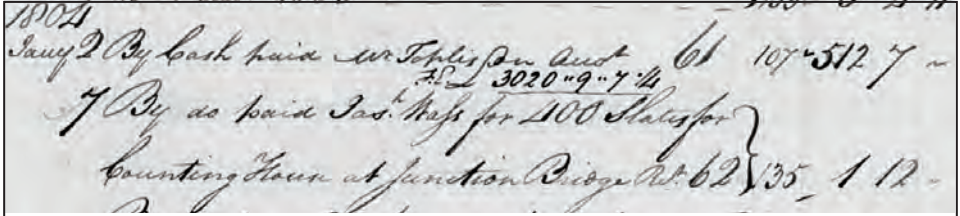 1804
Jany 2 By Cash paid Mr Tohlisson Acct 61 107 512 7 ~
3020 " 9 " 7 ¼
7 By do paid Jas. for 400 Slates for
Counting House at Junction Bridge Rt. 62 135 1 12 -